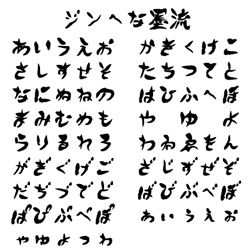 ジンへな墨流
あいうえお かきくけこ
さしすせそ たちつてと
なにぬねの はひふへほ
まみむめも や ゆ よ
らりるれろ わねゑをん
がぎぐげご ざじずぜぞ
だぢづでど ばびぶべぼ
ぱぴぷぺぽ ぁぃぅぇぉ
ゃゅょっゎ